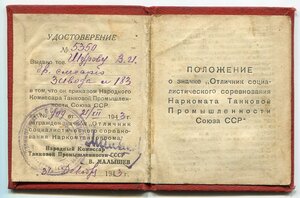 УДОСТОВЕРЕНИЕ
№ 5350
Выдано тов. Шурову В. И.
бр. слесарю
Завода № 183
в том, что он приказом Народного
Комиссара Танковой Промышлен-
ности Союза ССР
1943 г.
награжден значком „Отличник
социалистического соревнования
Наркомата танкопрома"
Народный Комиссар
Танковой Промышленности СССР
В. МАЛЫШЕВ
31 декабря 1943 г.
ПОЛОЖЕНИЕ
о значке "Отличник социа-
листического соревнования
Наркомата Танковой
Промышленности
Союза ССР"